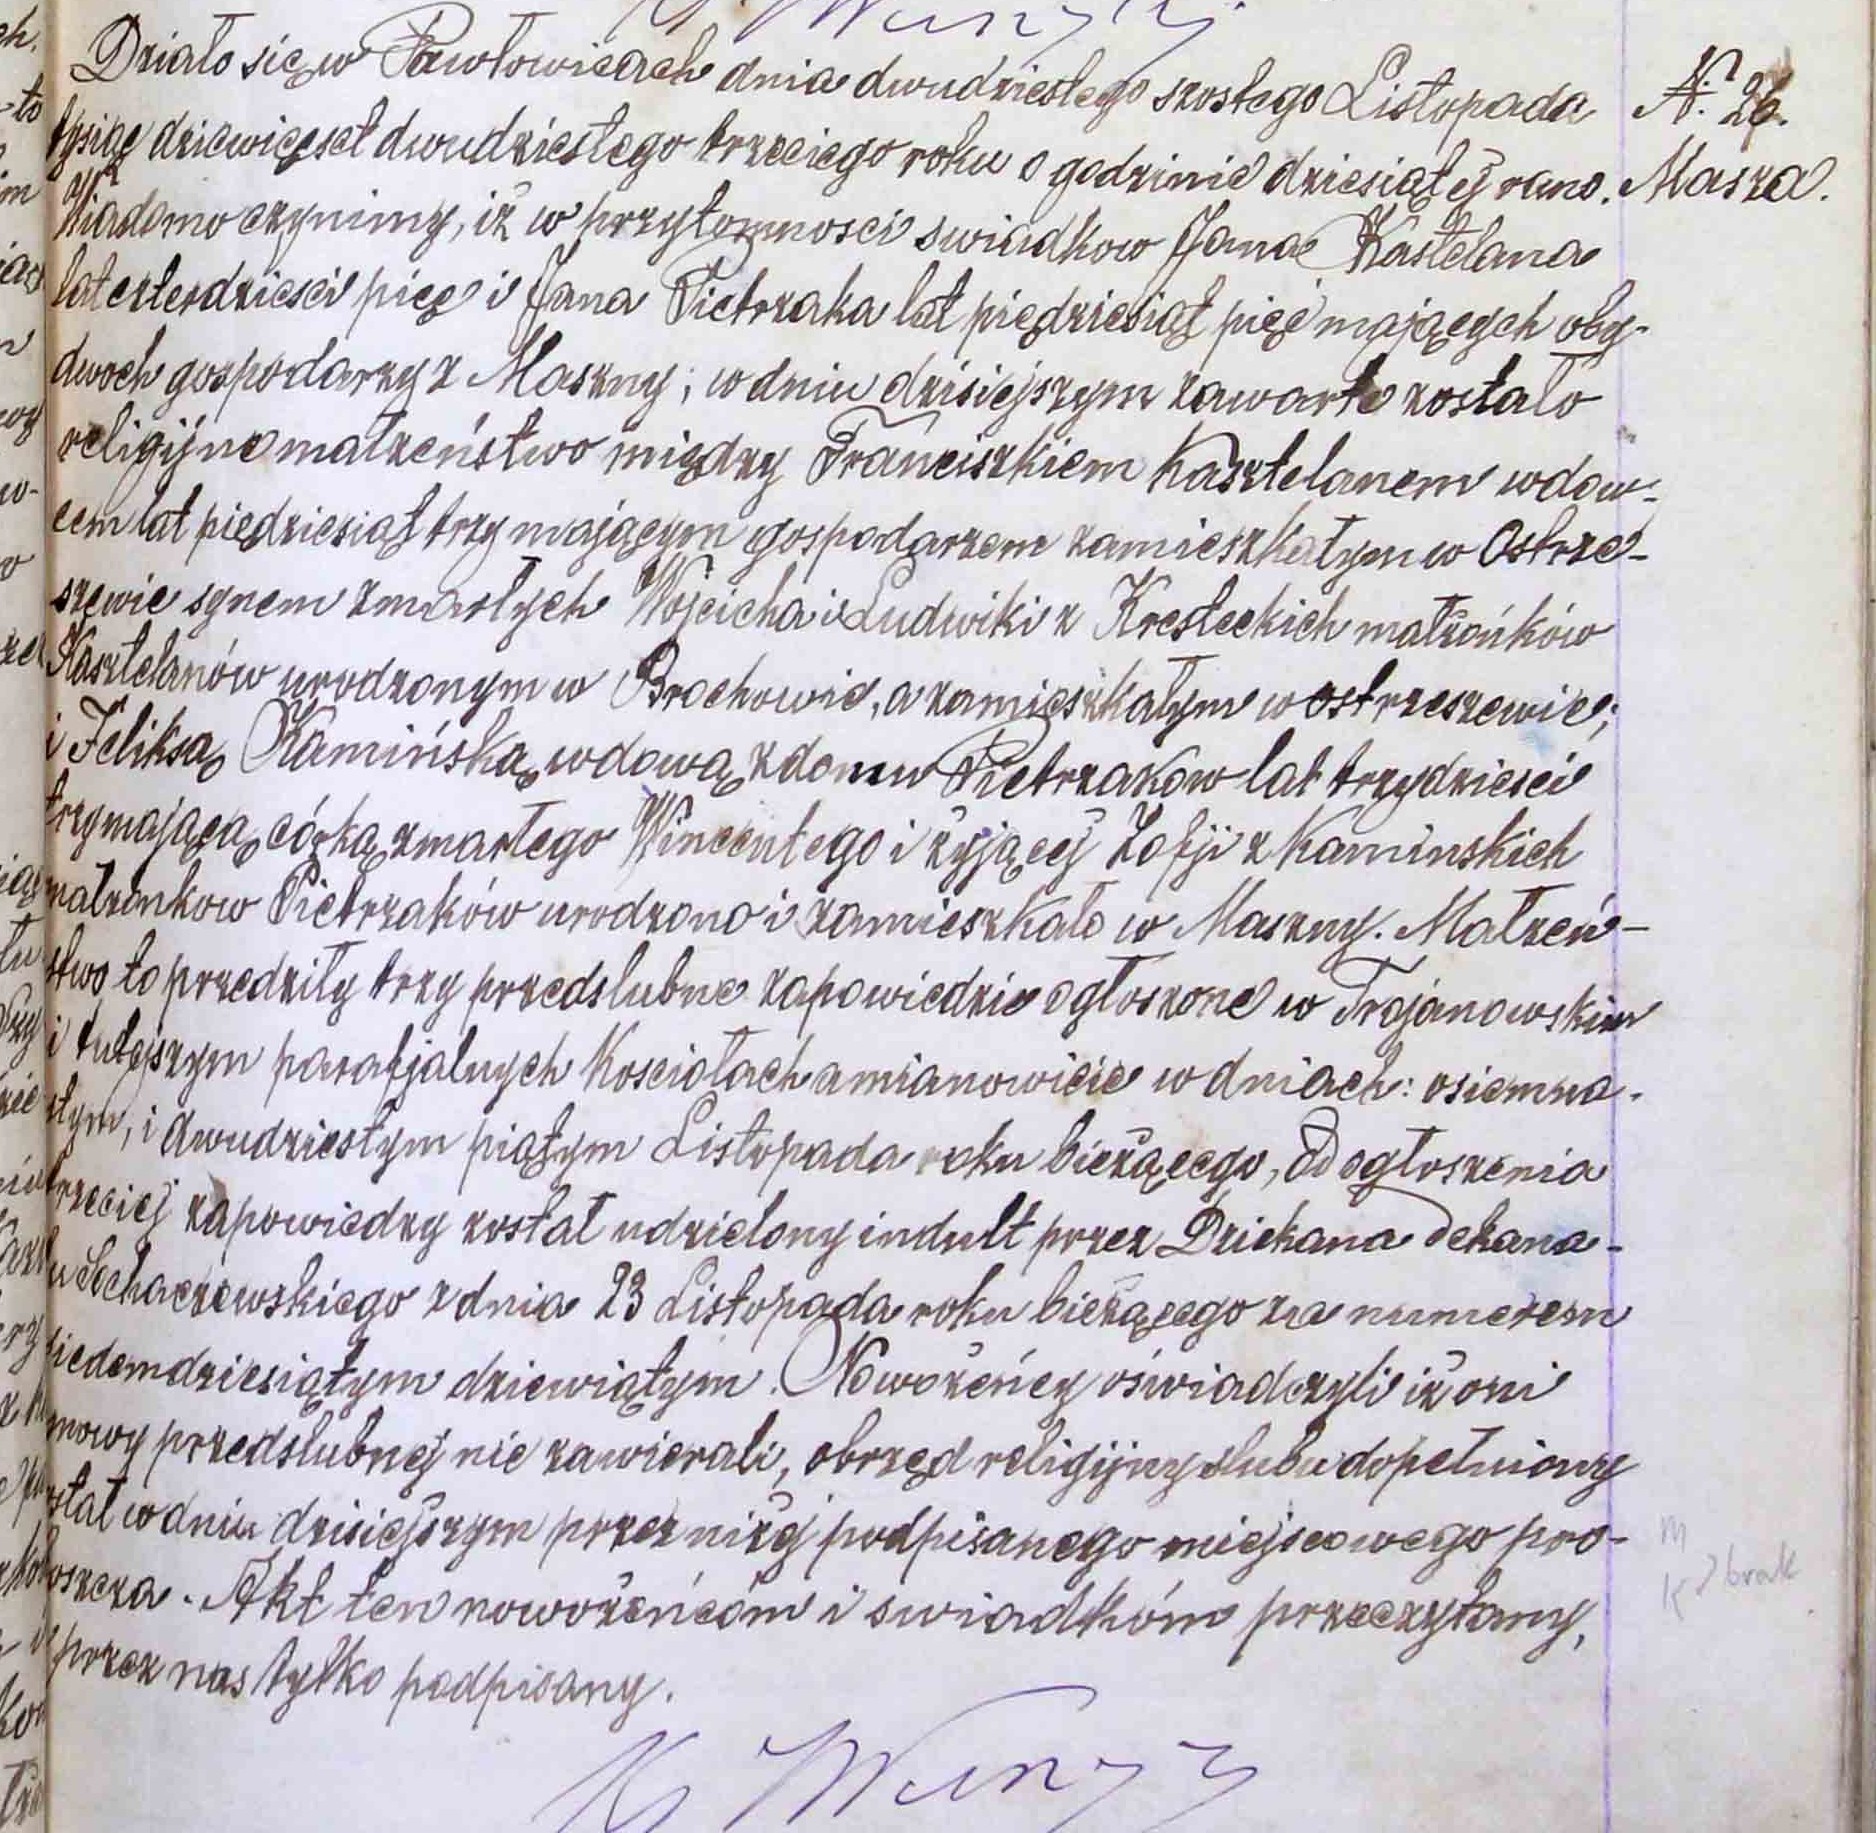 Działo się w Pawłowicach dnia dwudziestego szostego Listopada
N. 26.
tysiąc dziewięcset dwudziestego trzeciego roku o godzinie dziesiątej rano.
Maszna.
Wiadomo czynimy, iż w przytomnosci swiadkow Jana Kastelana
lat czterdziesci pięc i Jana Pietrzaka lat piędziesiąt pięć mających oby-
dwoch gospodarzy z Maszny; w dniu dzisiejszym zawarte zostało
religijne małzeństwo między Franciszkiem Kasztelanem wdow-
cem lat piędziesiąt trzy mającym gospodarzem zamieszkałym w Ostrze-
szewie synem zmarłych Wojcicha i Ludwiki z Kresteckich małżońków
Kasztelanów urodzonym w Brochowie, a zamieszkałym w ostrzeszewie;
i Feliksą Kamińską wdową z domu Pietrzakow lat trzydziesci
trzy mającą córką zmarłego Wincentego i żyjącej Zofji z Kaminskich
małzonkow Pietrzaków urodzono i zamieszkało w Maszny. Małzeń-
stwo to przedziły trzy przedslubne zapowiedzie ogłoszone w Trojanowskim
i tutejszym parafjalnych Kosciołach a mianowicie w dniach: osiemna-
stym, i dwudziestym piątym Listopada roku bieżącego, Od ogłoszenia
trzeciej zapowiedzy został udzielony indult przez Dziekana dekana-
u Sochaczewskiego z dnia 23 Listopada roku bieżącego za numerem
siedemdziesiątym dziewiątym. Nowożeńcy oświadczyli iż oni
mowy przedslubnej nie zawierali, obrzęd religijny slubu dopełniony
stał w dniu dzisiejszym przez niżej podpisanego miejscowego pro-
boszcza. Akt ten nowożeńcóm i swiadkóm przeczytany,
przez nas tylko podpisany.
M
K
brak